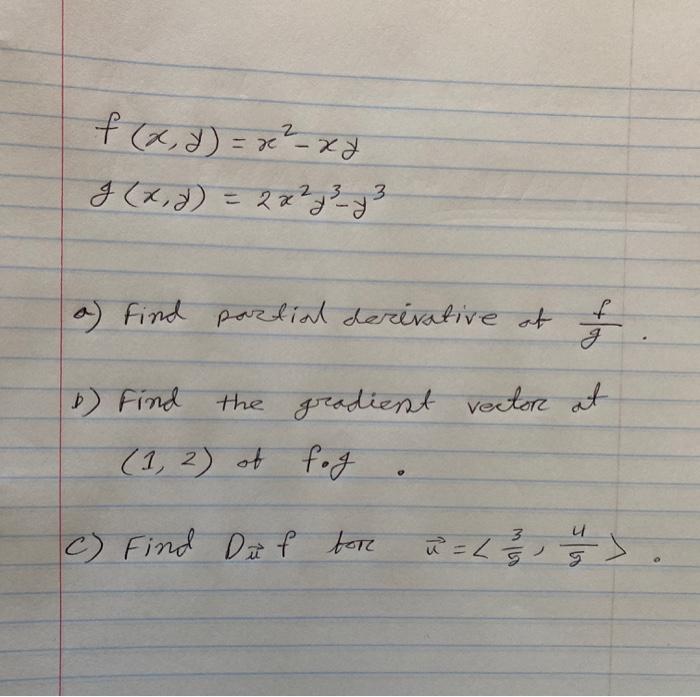 f(x,y) = x² - xy
g(x,y) = 2x²y³ - y³
a) Find partial derivative of f/g .
b) Find the gradient vector at
(1, 2) of f•g .
c) Find D_u⃗ f for u⃗ = < 3/5, 4/5 > .